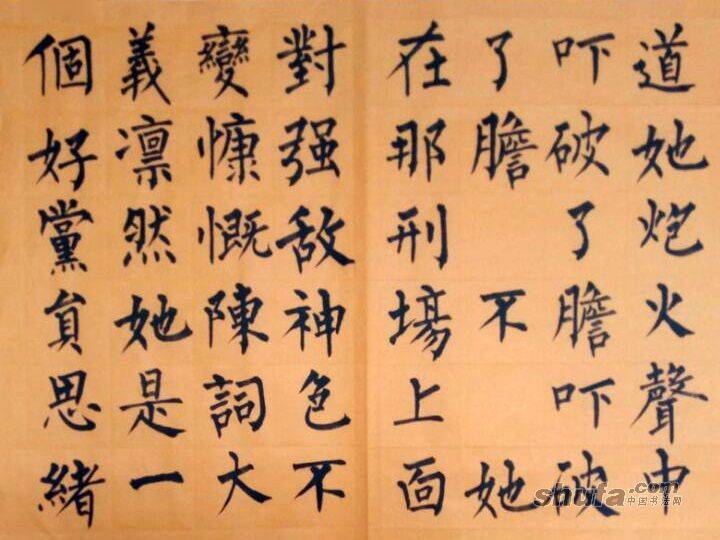 道她炮火聲中
吓破了膽吓破
了膽 不 她
在那刑場上面
對强敌神色不
變慷慨陳詞大
義凛然她是一
個好黨員思緒
shufa.com
中国书法网